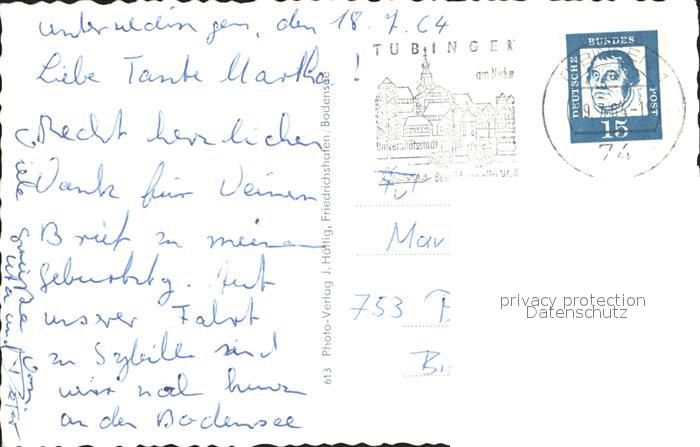 Unteruhldingen, den 18.7.64
Liebe Tante Martha!
Recht herzlichen
Dank für Deinen
Brief zu meinem
Geburtstg. Auf
unserer Fahrt
zu Sybille sind
wir noch kurz
an den Bodensee
Viele Grüsse
613 Photo-Verlag J. Hüttig, Friedrichshafen / Bodensee
TÜBINGEN
am Neckar
Universitätsstadt
DEUTSCHE BUNDES POST
15
74
753
privacy protection
Datenschutz